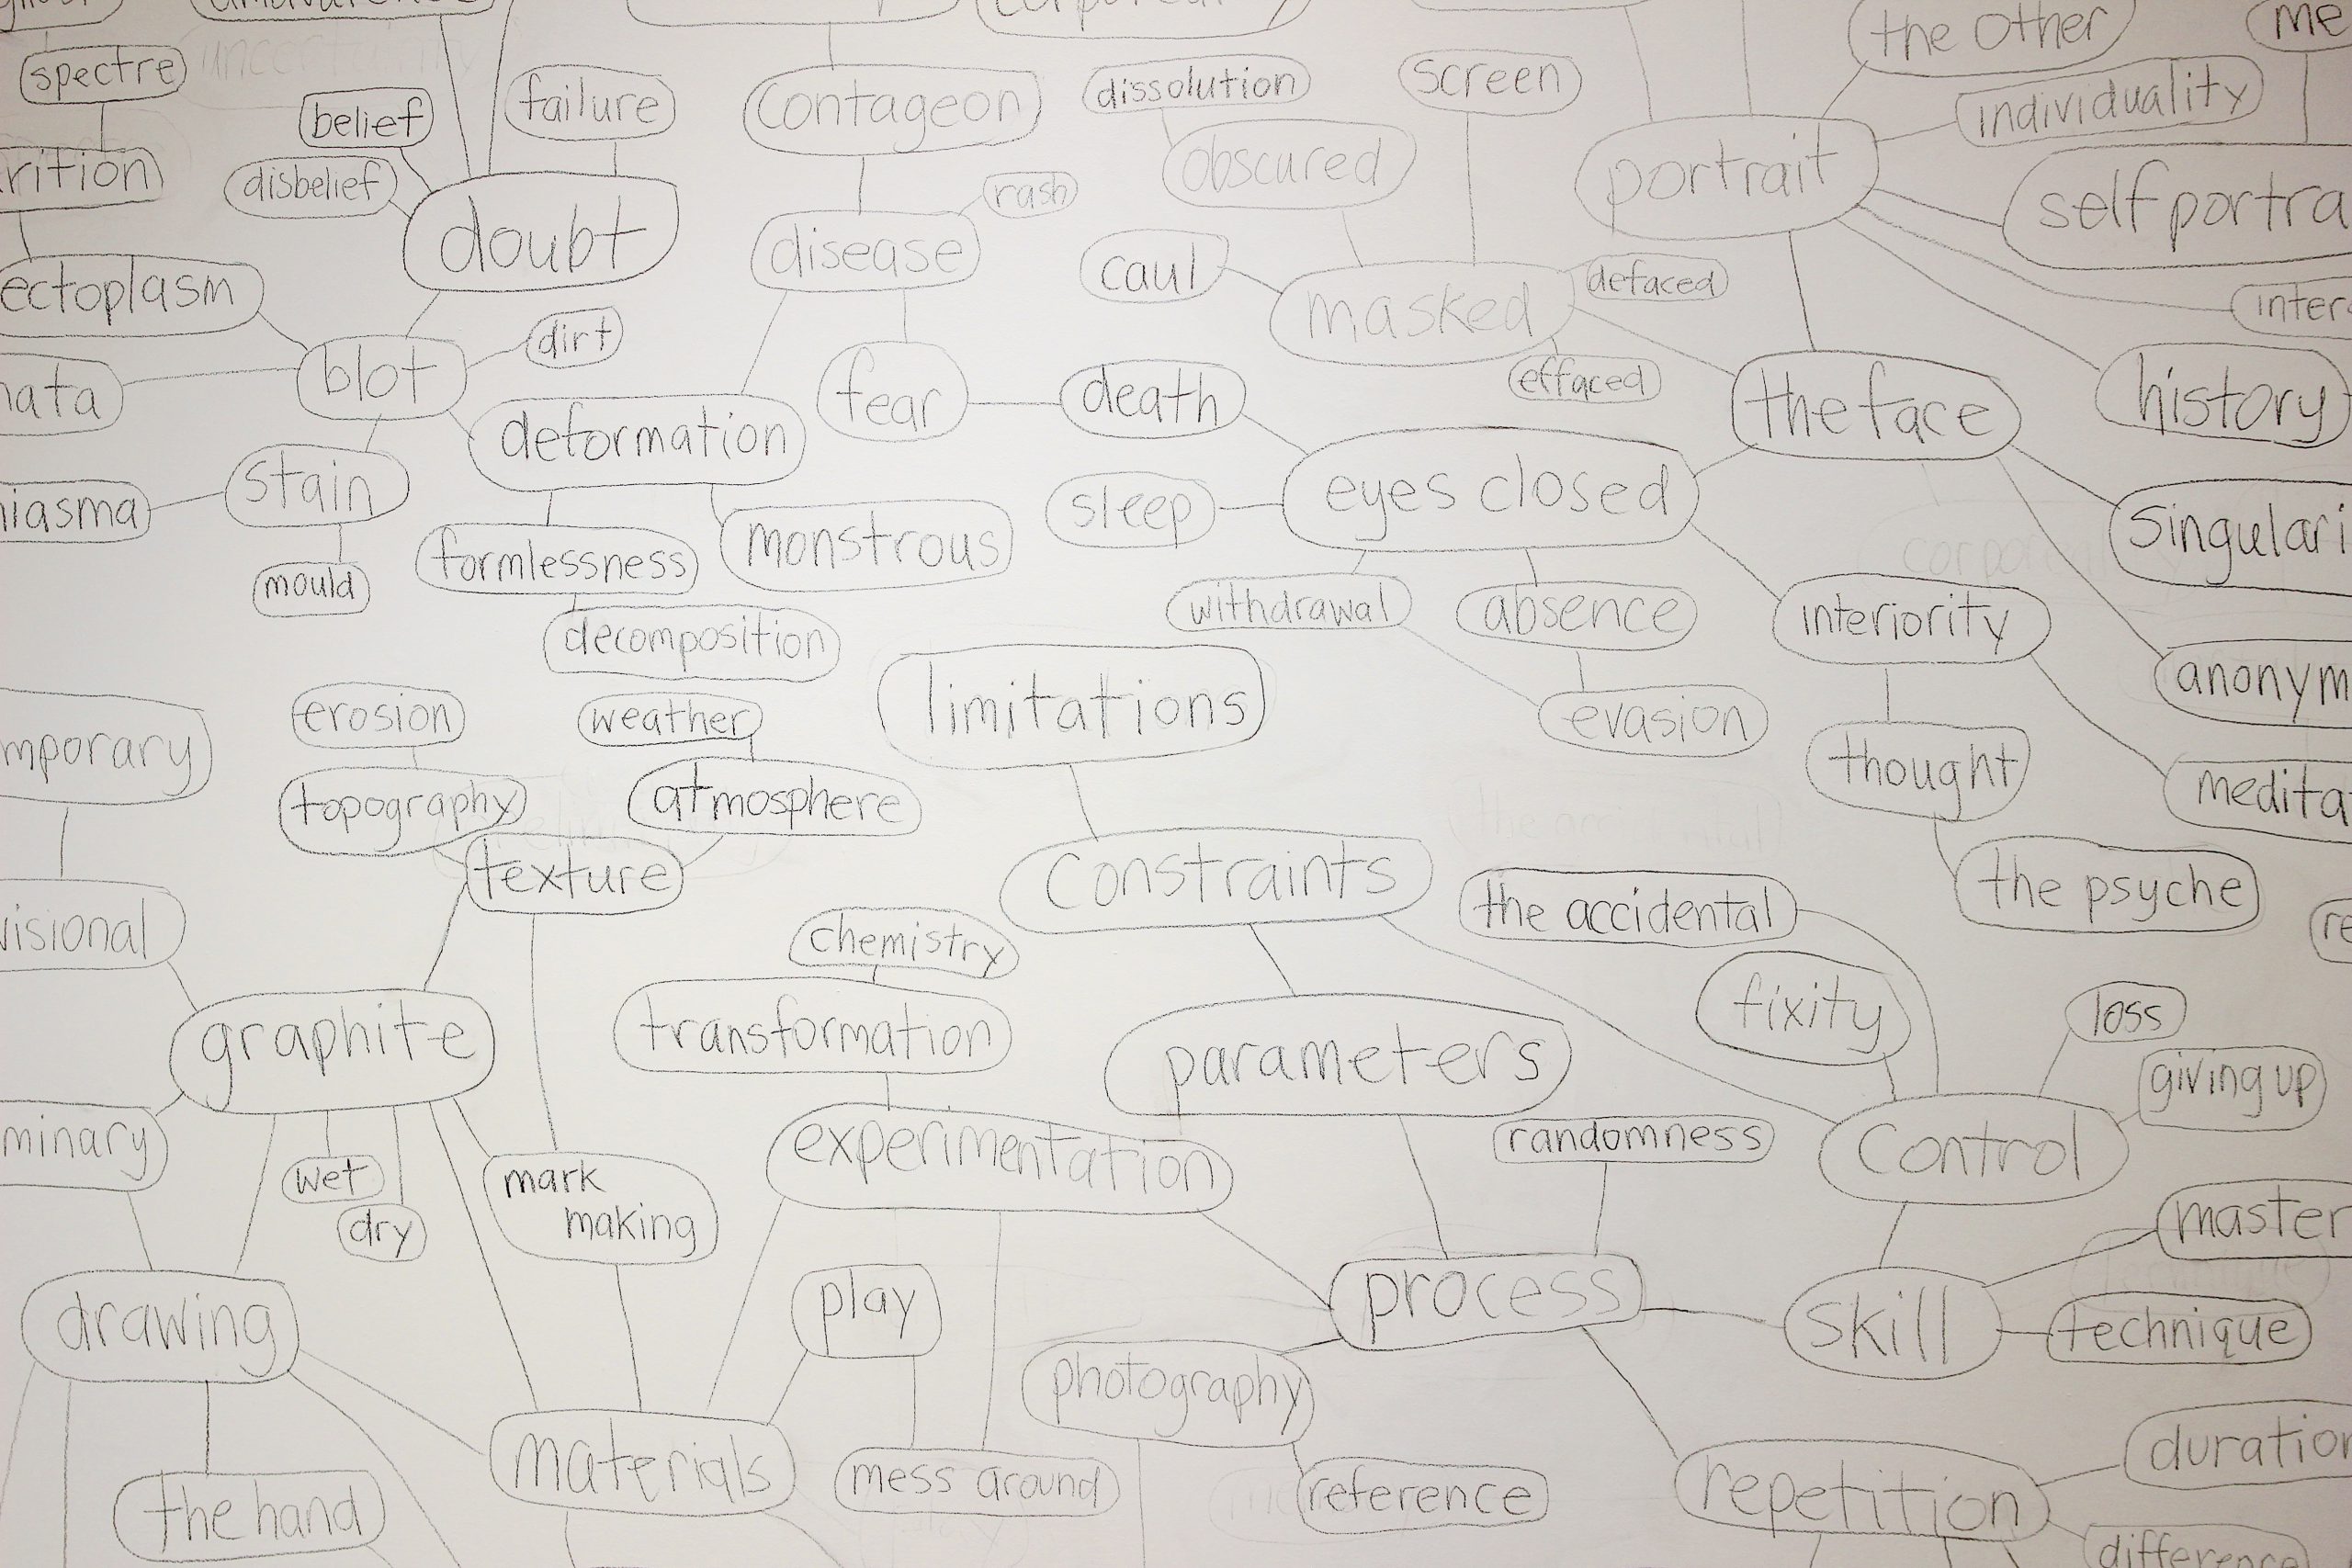 spectre
belief
disbelief
failure
doubt
ectoplasm
blot
dirt
stain
mould
contageon
disease
rash
fear
deformation
formlessness
monstrous
decomposition
dissolution
screen
obscured
caul
masked
defaced
effaced
death
sleep
eyes closed
withdrawal
absence
evasion
the other
me
individuality
portrait
self portra
the face
history
singulari
interiority
anonym
thought
medita
the psyche
limitations
constraints
parameters
the accidental
fixity
loss
giving up
control
randomness
master
skill
technique
process
photography
reference
repetition
duration
difference
erosion
weather
topography
atmosphere
texture
chemistry
transformation
experimentation
mporary
visional
graphite
minary
wet
dry
mark
making
play
drawing
materials
mess around
the hand